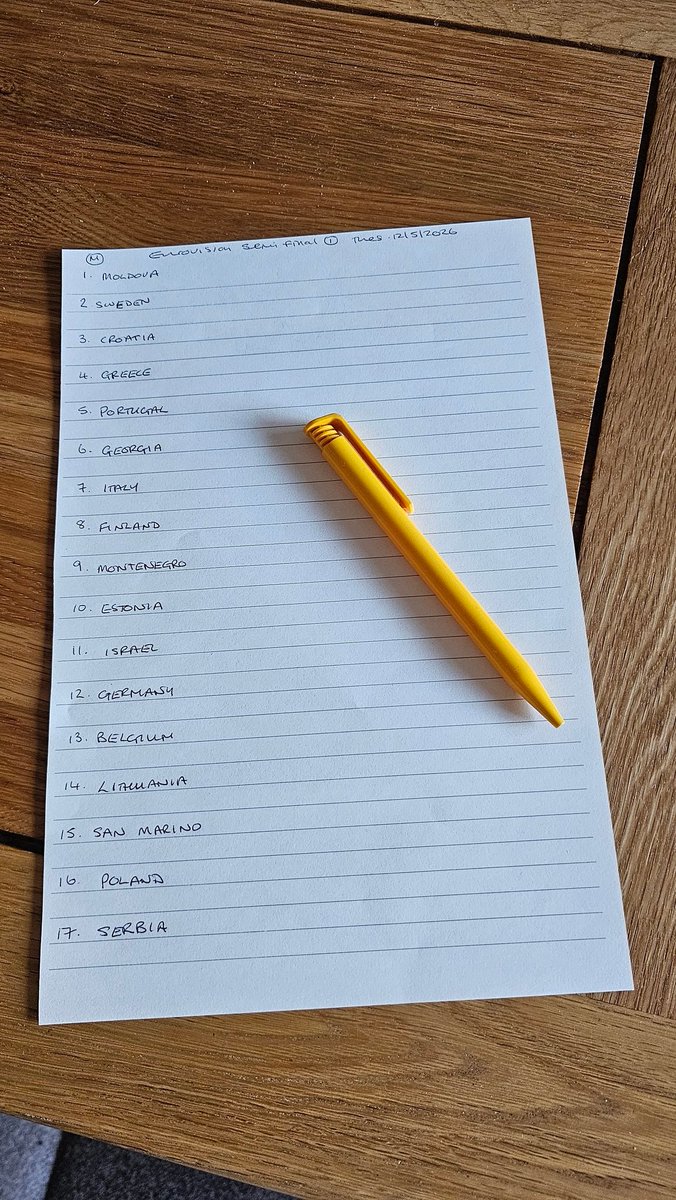 M Eurovision semi final 1 Tues. 12/5/2026
1. MOLDOVA
2 SWEDEN
3. CROATIA
4. GREECE
5. PORTUGAL
6. GEORGIA
7. ITALY
8. FINLAND
9. MONTENEGRO
10. ESTONIA
11. ISRAEL
12. GERMANY
13. BELGIUM
14. LITHUANIA
15. SAN MARINO
16. POLAND
17. SERBIA